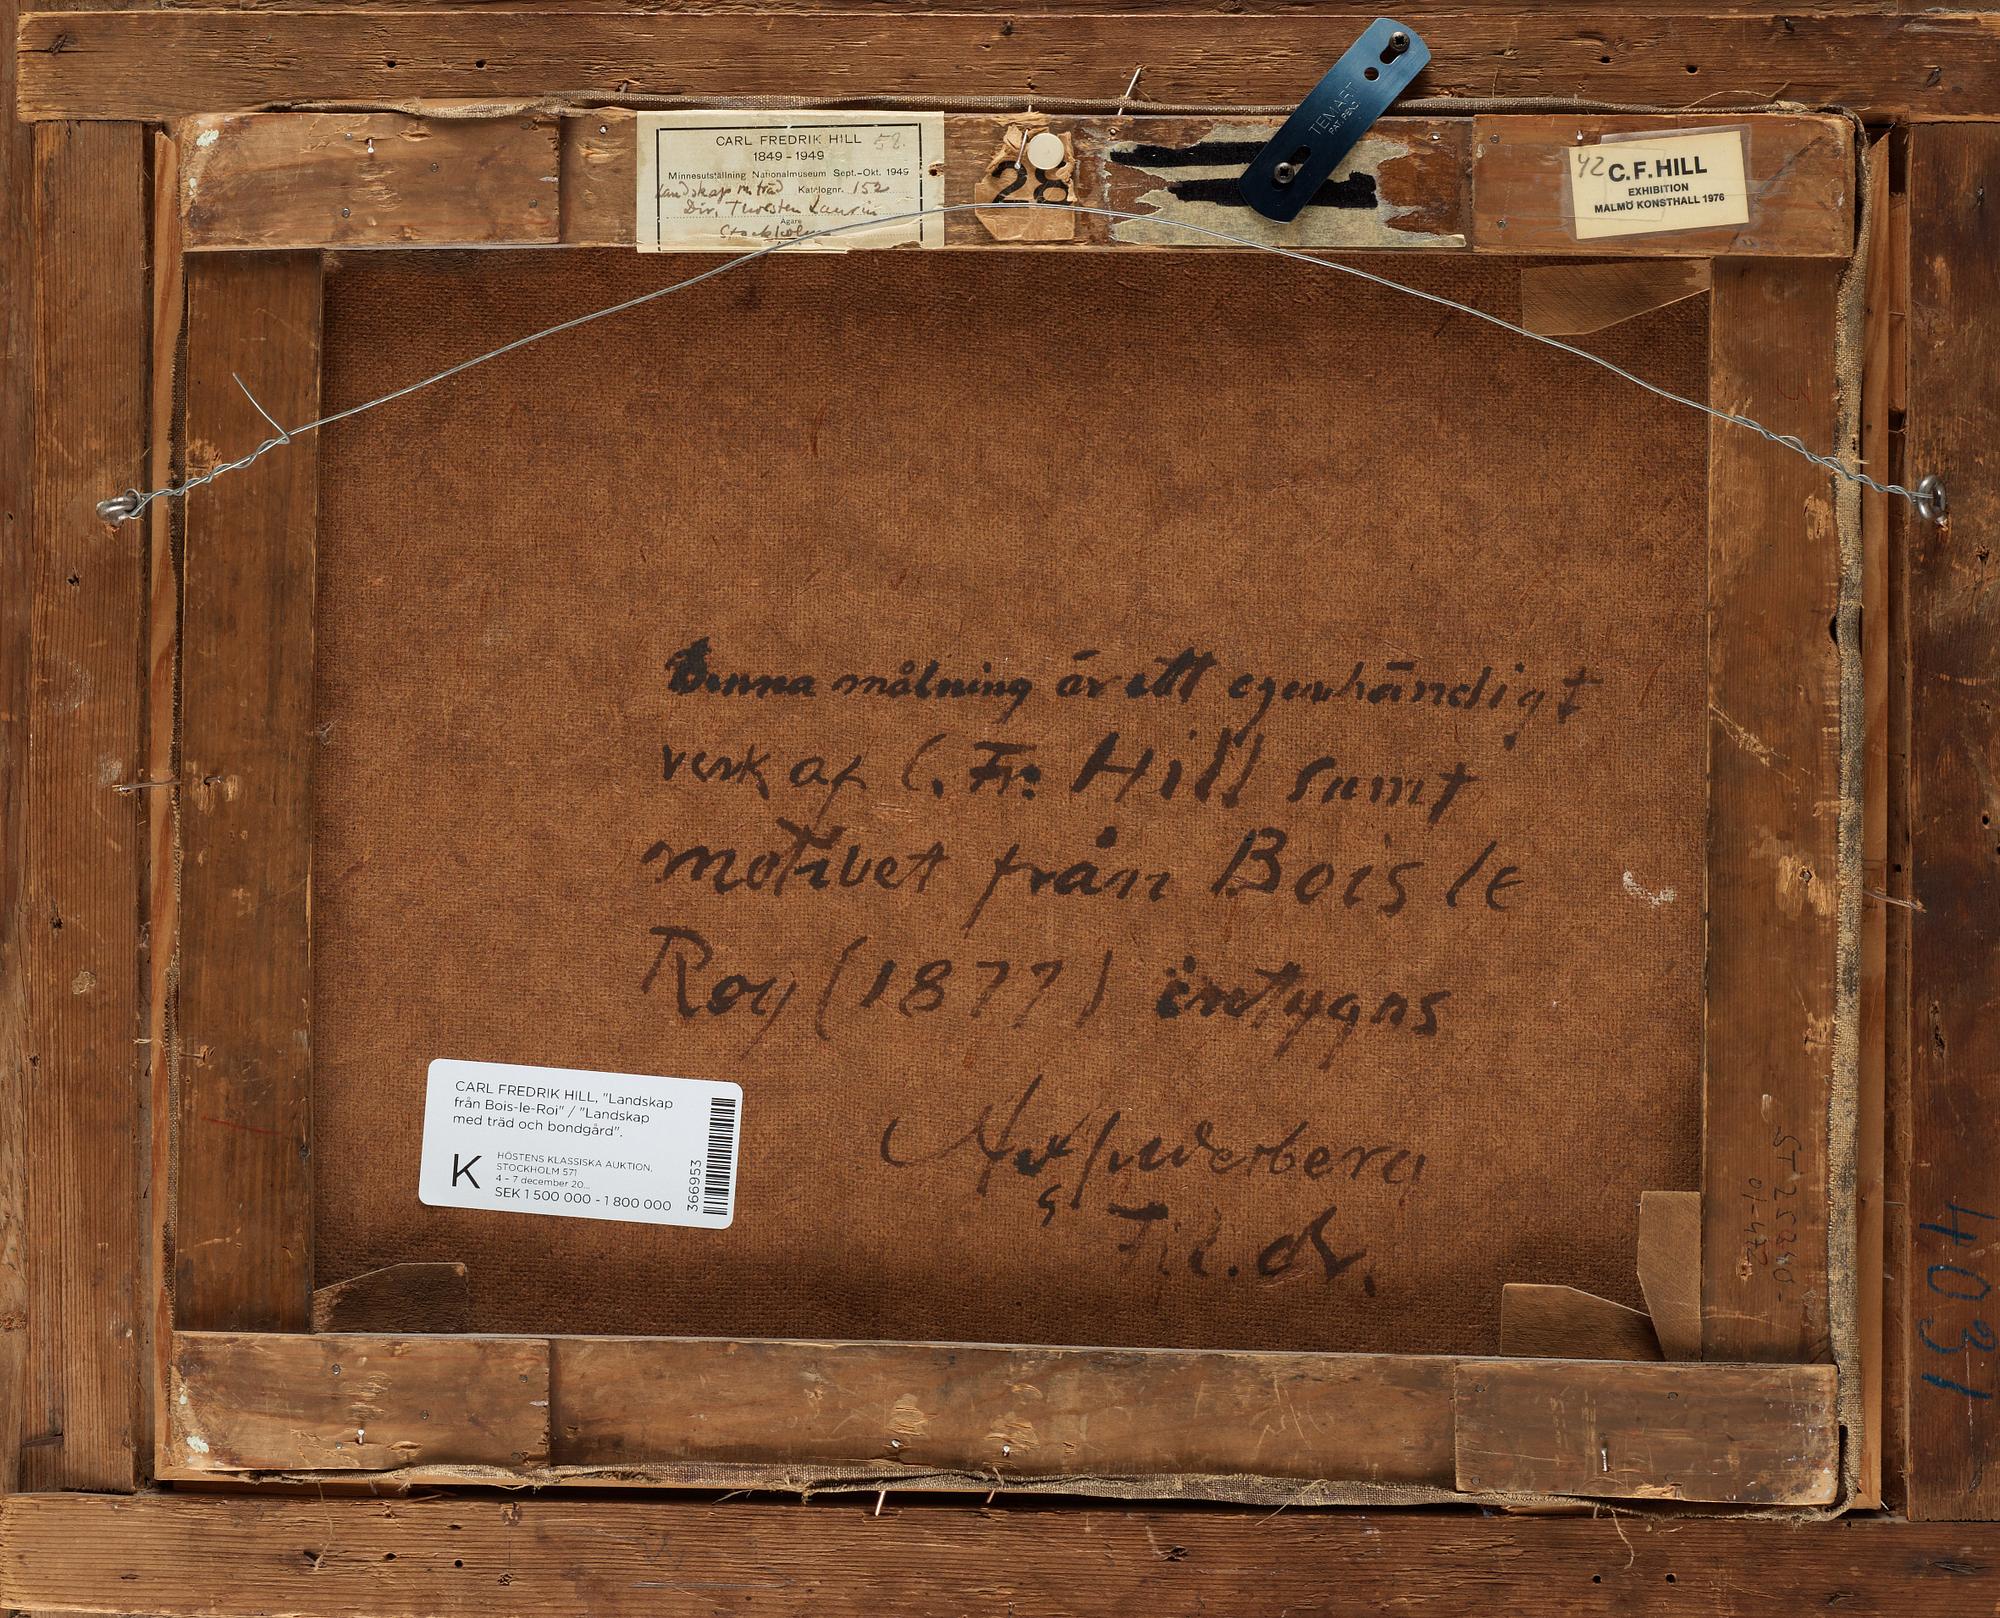 CARL FREDRIK HILL 52.
1849 - 1949
Minnesutställning Nationalmuseum Sept.-Okt. 1949
Landskap m. träd Katalognr. 152
Dir. Thorsten Laurin
Ägare
Stockholm
28
TEMART
PAT. PEND.
42 C.F. HILL
EXHIBITION
MALMÖ KONSTHALL 1976
Denna målning är ett egenhändigt
verk af C. Fr. Hill samt
motivet från Bois le
Roy (1877) intygas
Fil. dr.
CARL FREDRIK HILL, "Landskap
från Bois-le-Roi" / "Landskap
med träd och bondgård".
K
HÖSTENS KLASSISKA AUKTION,
STOCKHOLM 571
4 - 7 december 20...
SEK 1 500 000 - 1 800 000
366953
4031